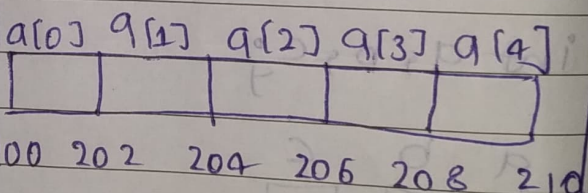 a[0] a[1] a[2] a[3] a[4]
00 202 204 206 208 210